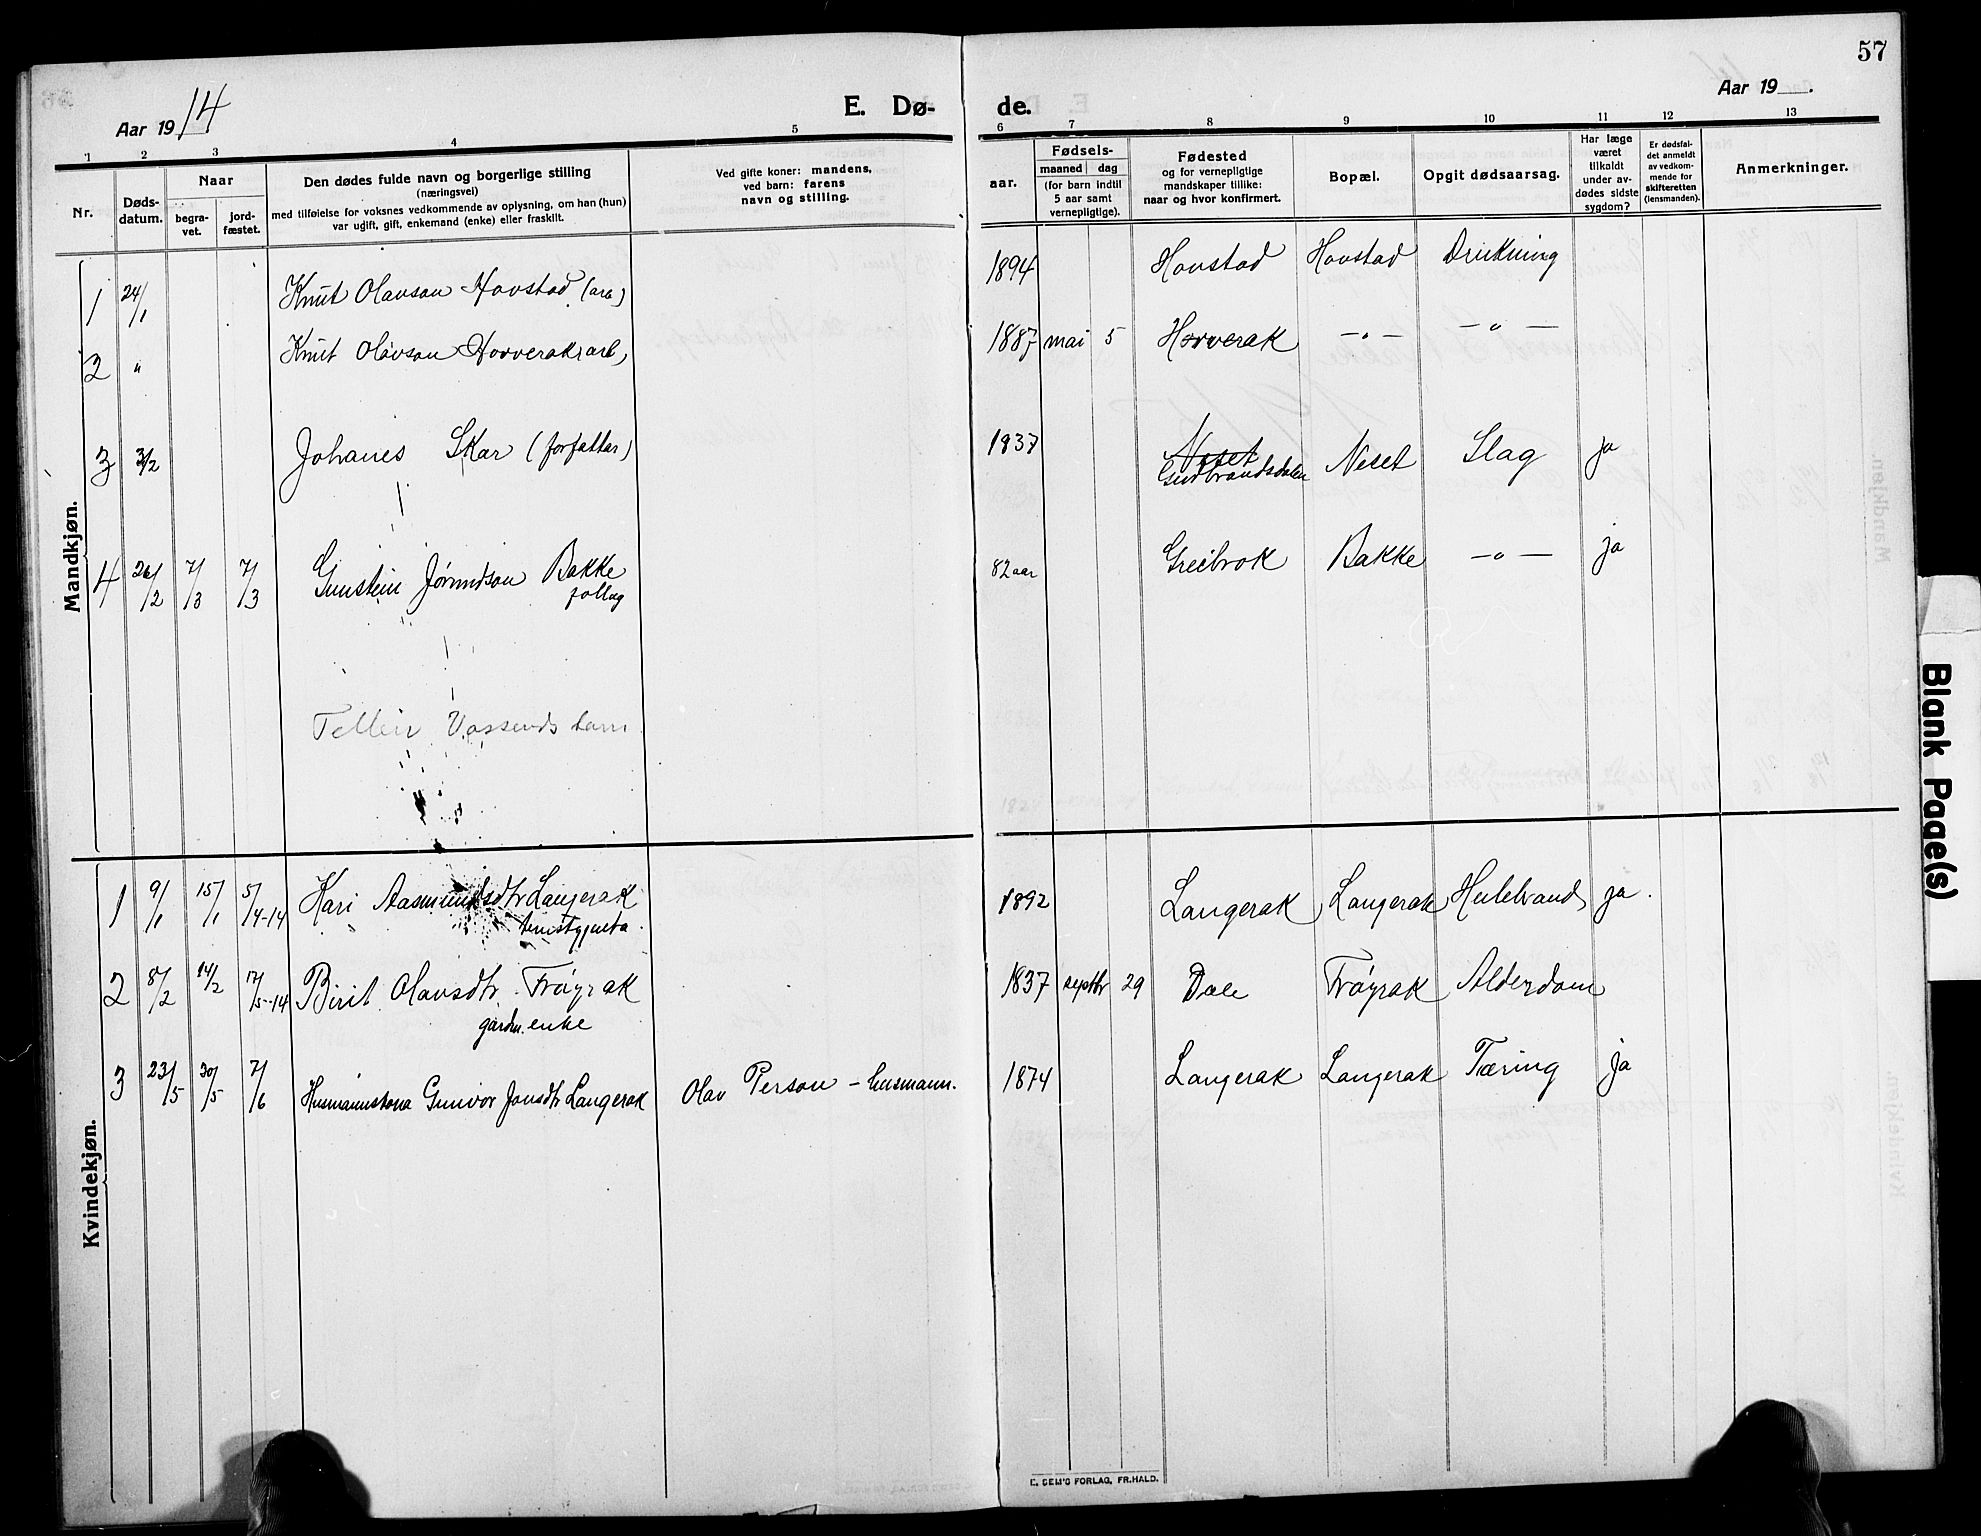 57
Aar 1914
E. Dø-
de.
Aar 19 .
1 2 3 4 5 6 7 8 9 10 11 12 13
Nr.
Døds-
datum.
Naar
begra-
vet.
jord-
fæstet.
Den dødes fulde navn og borgerlige stilling
(næringsvei)
med tilføielse for voksnes vedkommende av oplysning, om han (hun)
var ugift, gift, enkemand (enke) eller fraskilt.
Ved gifte koner: mandens,
ved barn: farens
navn og stilling.
Fødsels-
aar.
maaned dag
(for barn indtil
5 aar samt
vernepligtige).
Fødested
og for vernepligtige
mandskaper tillike:
naar og hvor konfirmert.
Bopæl.
Opgit dødsaarsag.
Har læge
været
tilkaldt
under av-
dødes sidste
sygdom?
Er dødsfal-
det anmeldt
av vedkom-
mende for
skifteretten
(lensmanden).
Anmerkninger.
Mandkjøn.
1 24/1 Knut Olavson Hovstad (arb) 1894 Hovstad Hovstad Drukning
2 " Knut Olavson Horverak (arb) 1887 mai 5 Horverak —"— —"—
3 3/2 Johanes Skar (forfattar) 1837 Neset Gudbrandsdalen Neset Slag ja
4 26/2 7/3 7/3 Gunstein Jørundson Bakke 82 aar Greibrok Bakke —"— ja
follog
Tellein Vossends barn
Kvindekjøn.
1 9/1 15/1 5/4-14 Kari Aasmundsdtr Langerak 1892 Langerak Langerak Hulebrand ja.
tenistgjenta.
2 8/2 14/2 17/5-14 Birit Olavsdtr. Frøyrak 1837 septbr 29 Dale Frøyrak Alderdom
gardm. enke
3 23/5 30/5 7/6 Husmannskona Gunvor Jonsdtr Langerak Olav Person - husmann. 1874 Langerak Langerak Tæring ja
E. SEM'S FORLAG, FR.HALD.
Blank Page(s)